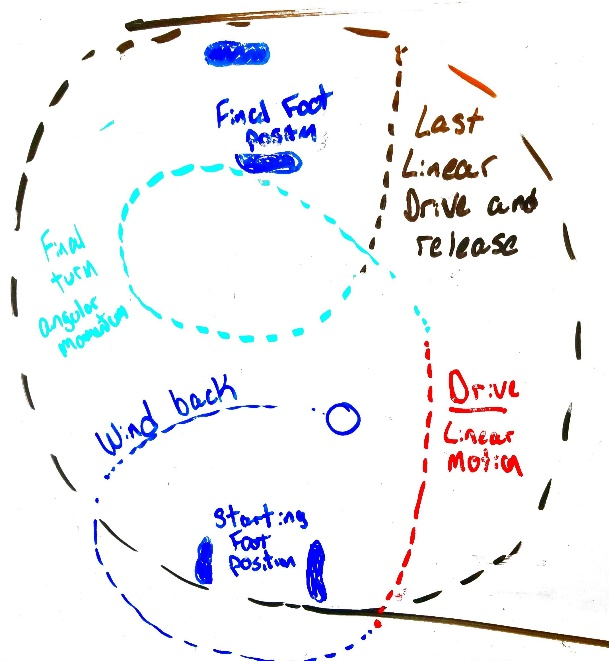 Final Foot
Positn
Last
Linear
Drive and
release
Final
turn
angular
momentum
Wind back
Drive
Linear
Motion
Starting
Foot
Position